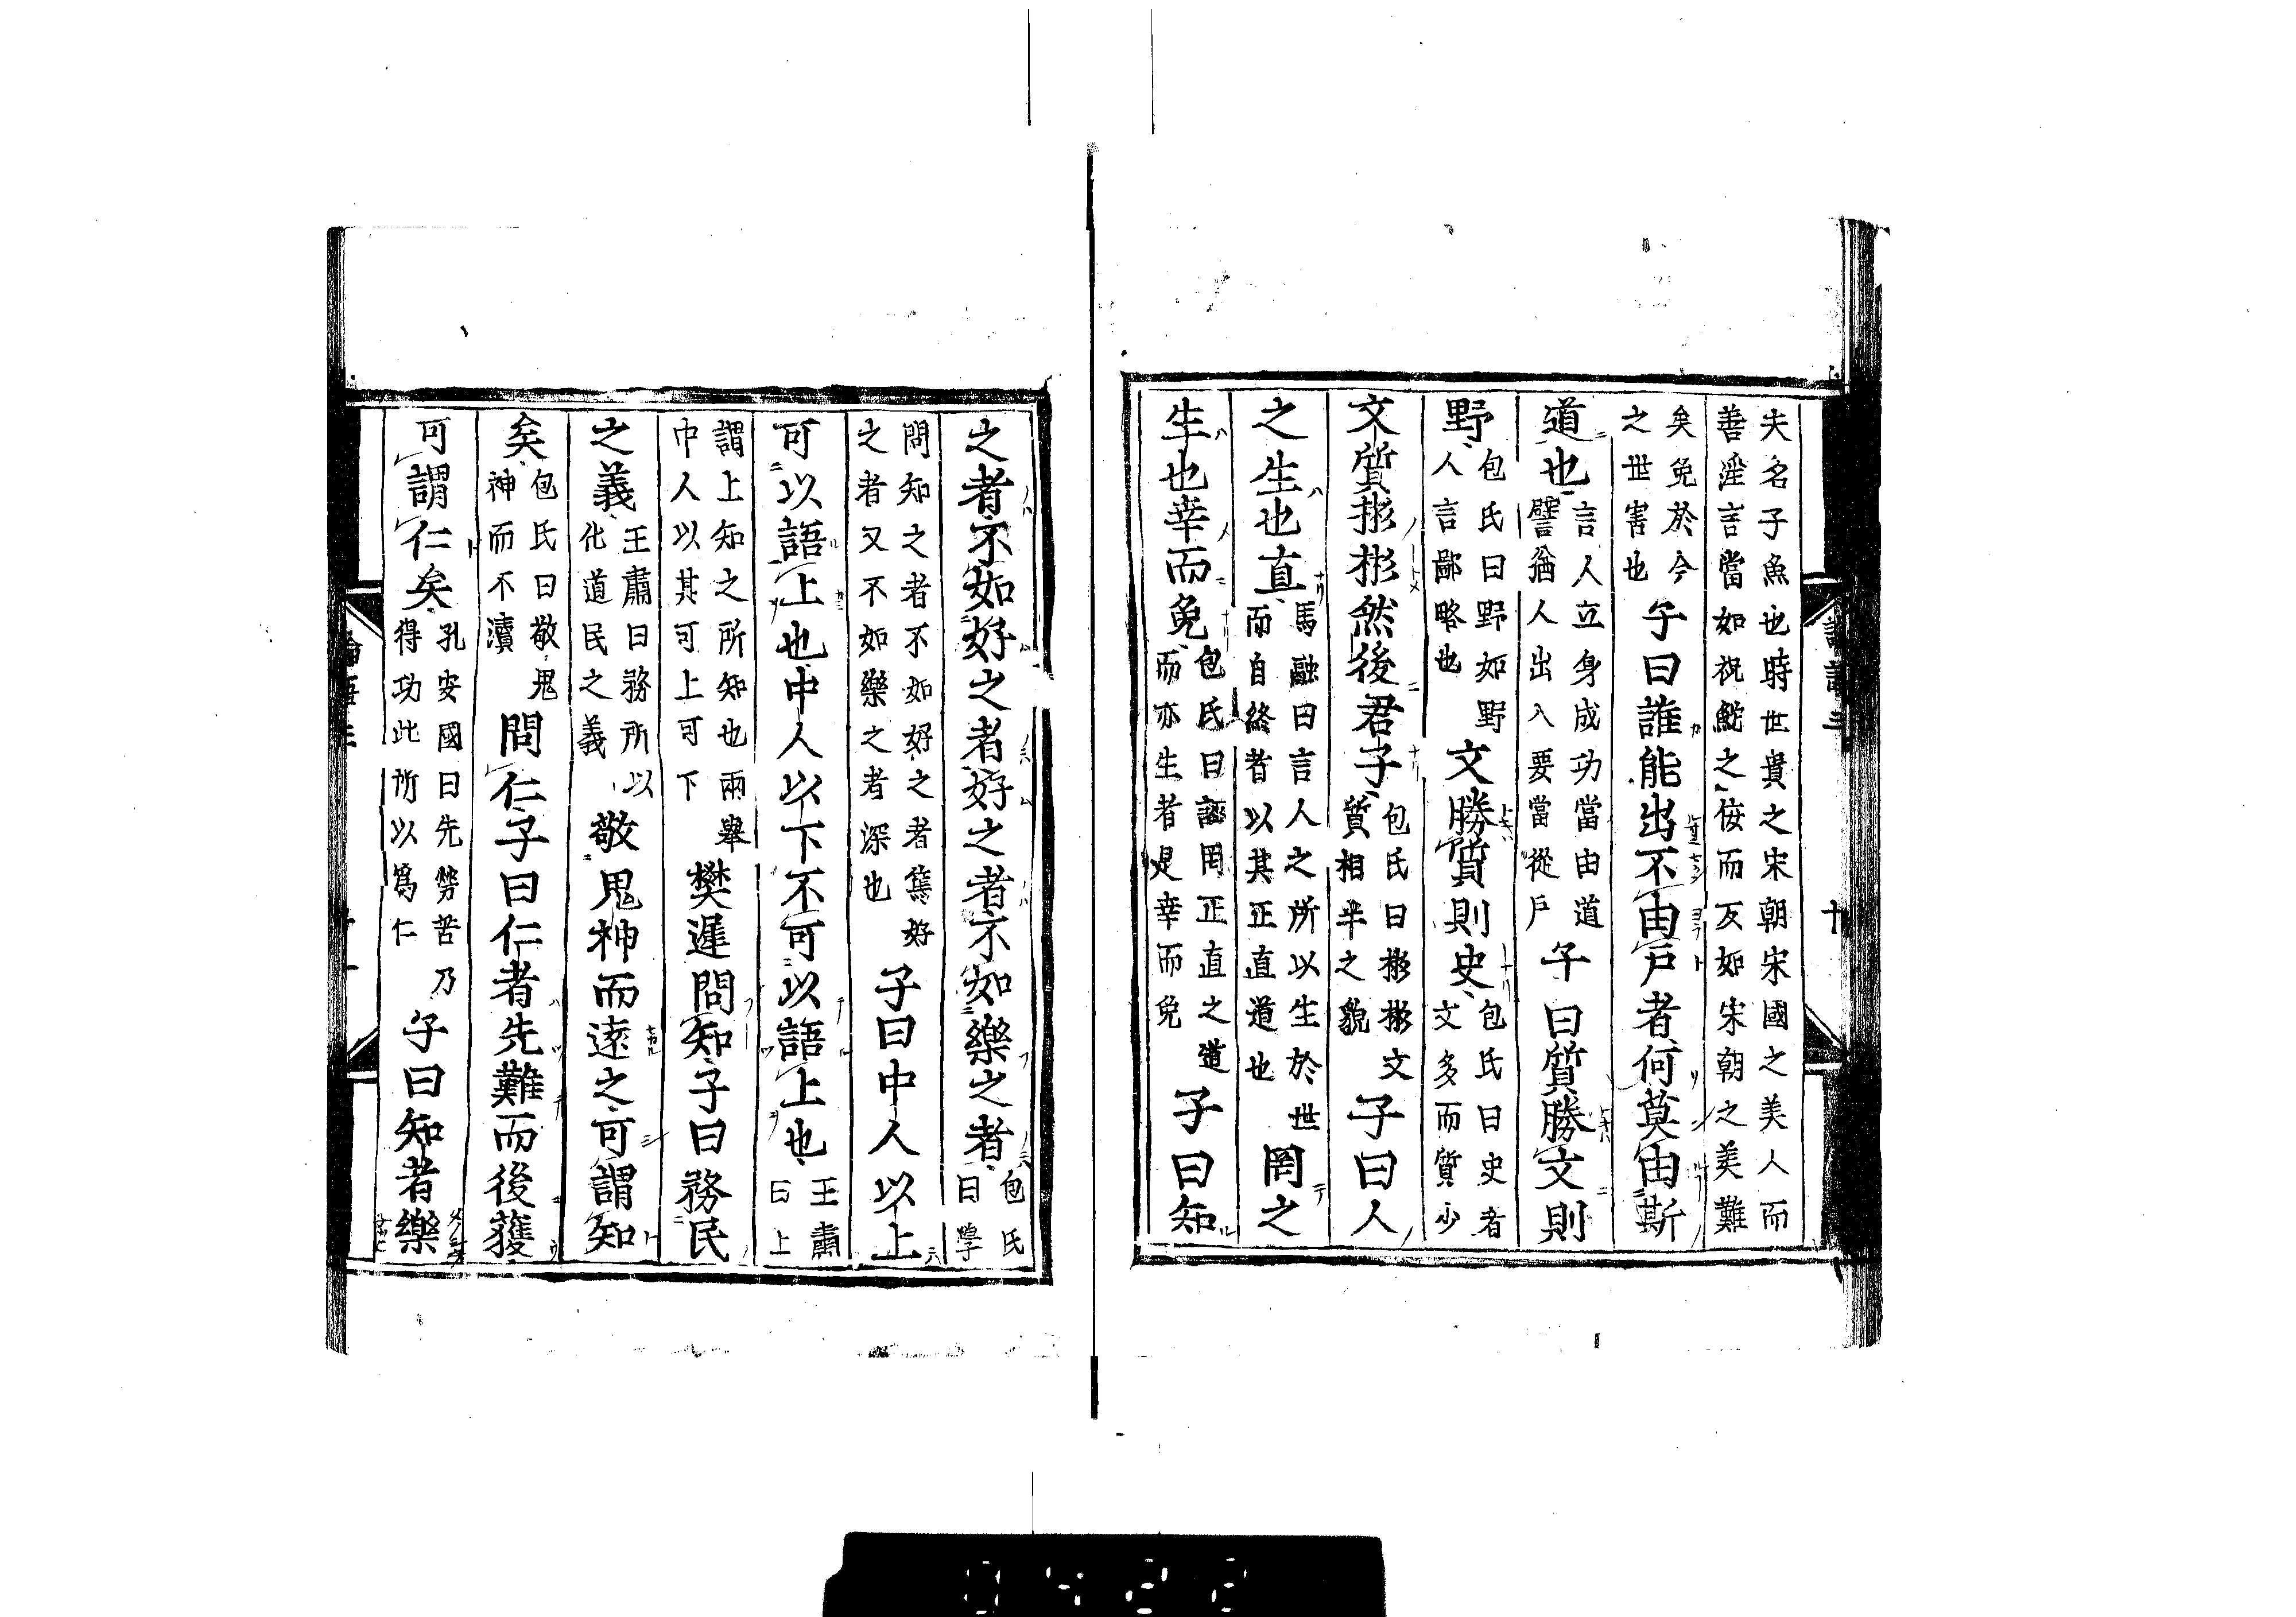 夫名子魚也時世貴之宋朝宋國之美人而
善淫言當如祝鮀之佞而反如宋朝之美難
矣免於今
之世害也
子曰誰能出不由戶者何莫由斯
道也
言人立身成功當由道
譬猶人出入要當從戶
子曰質勝文則
野
包氏曰野如野
人言鄙略也
文勝質則史
包氏曰史者
文多而質少
文質彬彬然後君子
包氏曰彬彬文
質相半之貌
子曰人
之生也直
馬融曰言人之所以生於世
而自終者以其正直道也
罔之
生也幸而免
包氏曰誣罔正直之道
而亦生者是幸而免
子曰知
之者不如好之者好之者不如樂之者
包氏
曰學
問知之者不如好之者篤好
之者又不如樂之者深也
子曰中人以上
可以語上也中人以下不可以語上也
王肅
曰上
謂上知之所知也兩舉
中人以其可上可下
樊遲問知子曰務民
之義
王肅曰務所以
化道民之義
敬鬼神而遠之可謂知
矣
包氏曰敬鬼
神而不瀆
問仁子曰仁者先難而後獲
可謂仁矣
孔安國曰先勞苦乃
得功此所以爲仁
子曰知者樂